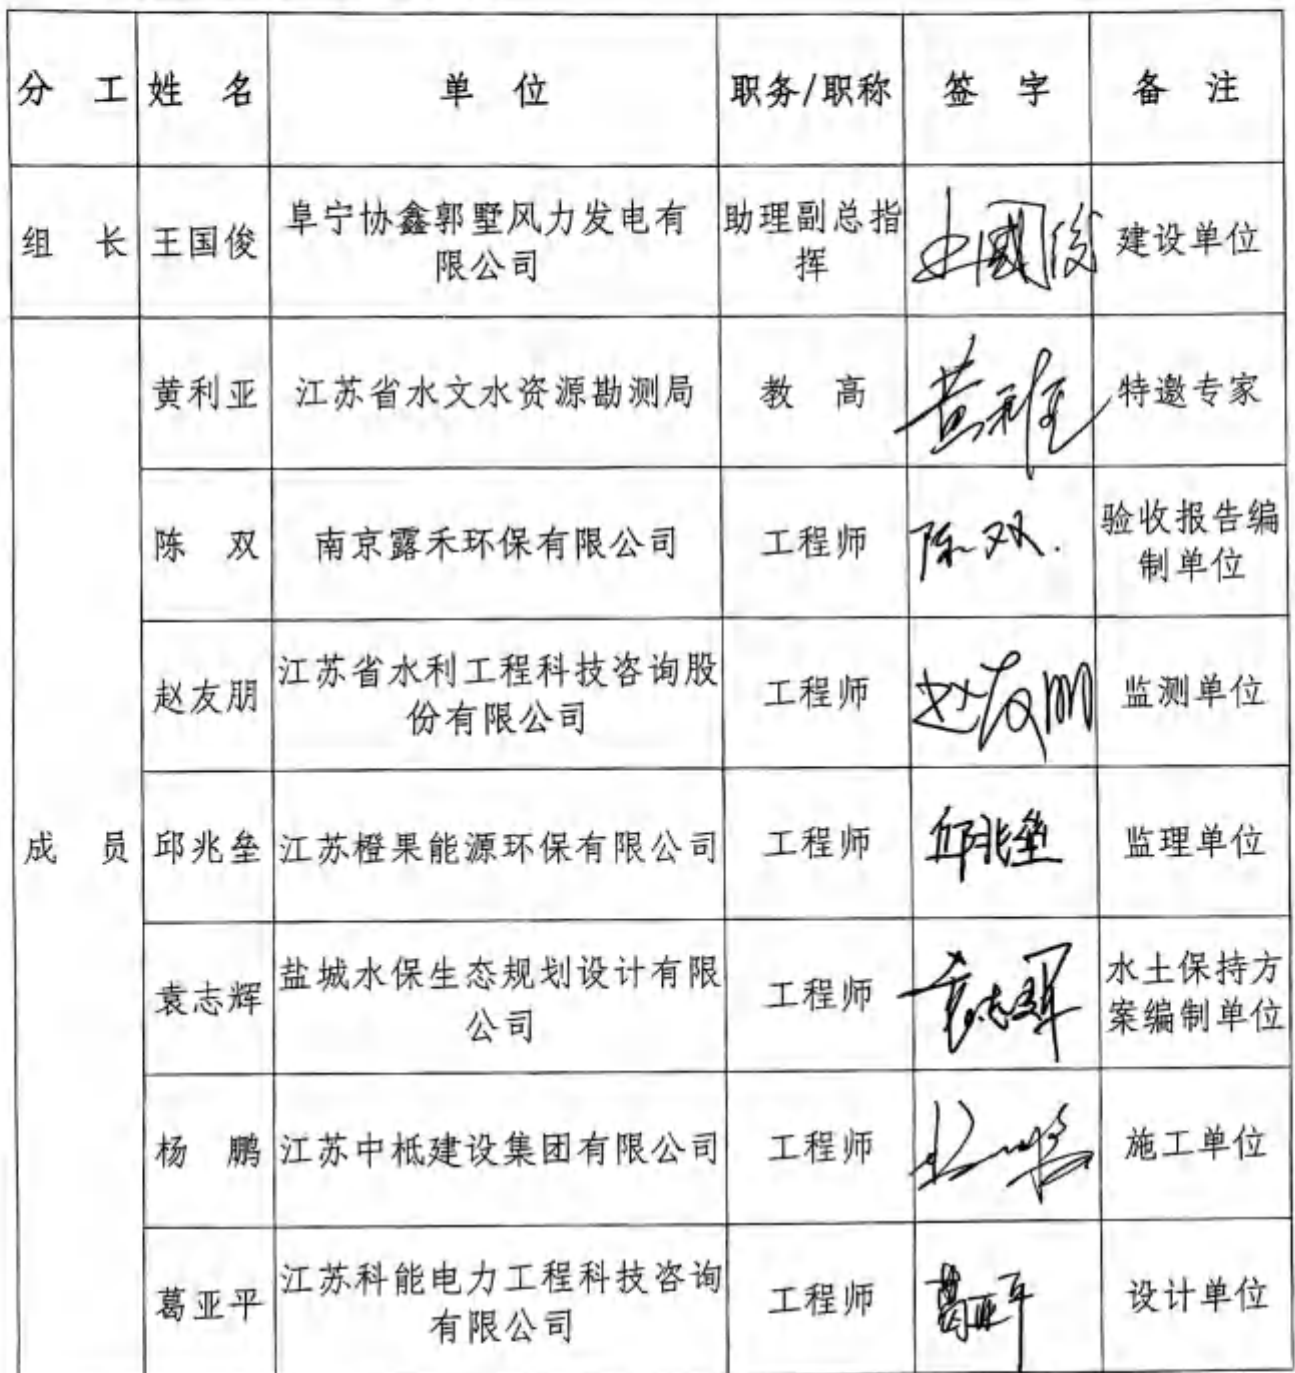 分 工 姓 名 单 位 职务/职称 签 字 备 注
组 长 王国俊 阜宁协鑫郭墅风力发电有 助理副总指 王國俊 建设单位
限公司 挥
黄利亚 江苏省水文水资源勘测局 教 高 黄利亚 特邀专家
陈 双 南京露禾环保有限公司 工程师 陈双 验收报告编
制单位
赵友朋 江苏省水利工程科技咨询股 工程师 赵友朋 监测单位
份有限公司
成 员 邱兆垒 江苏橙果能源环保有限公司 工程师 邱兆垒 监理单位
袁志辉 盐城水保生态规划设计有限 工程师 袁志辉 水土保持方
公司 案编制单位
杨 鹏 江苏中柢建设集团有限公司 工程师 杨鹏 施工单位
葛亚平 江苏科能电力工程科技咨询 工程师 葛亚平 设计单位
有限公司